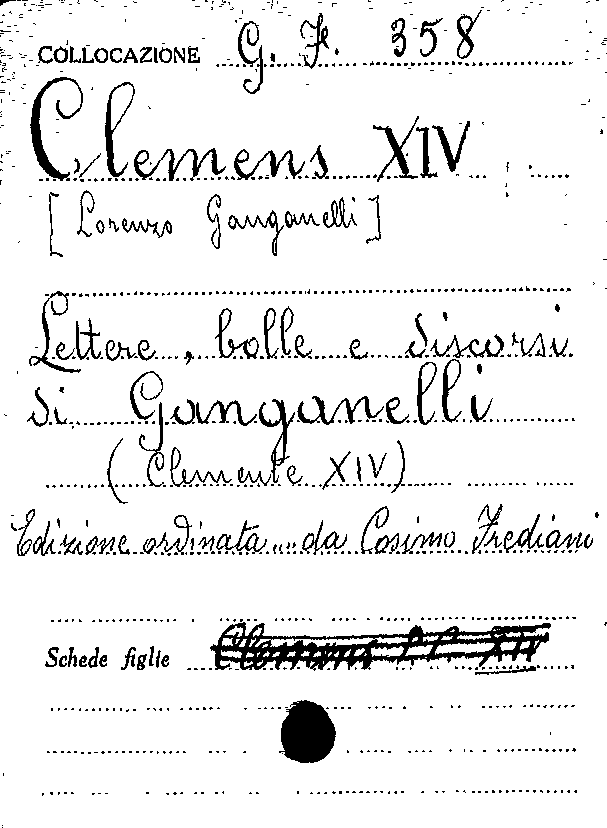 COLLOCAZIONE G. F. 358
Clemens XIV
[Lorenzo Ganganelli]
Lettere, bolle e discorsi
di Ganganelli
(Clemente XIV)
Edizione ordinata .... da Cosimo Frediani
Schede figlie Clemens P.P. XIV